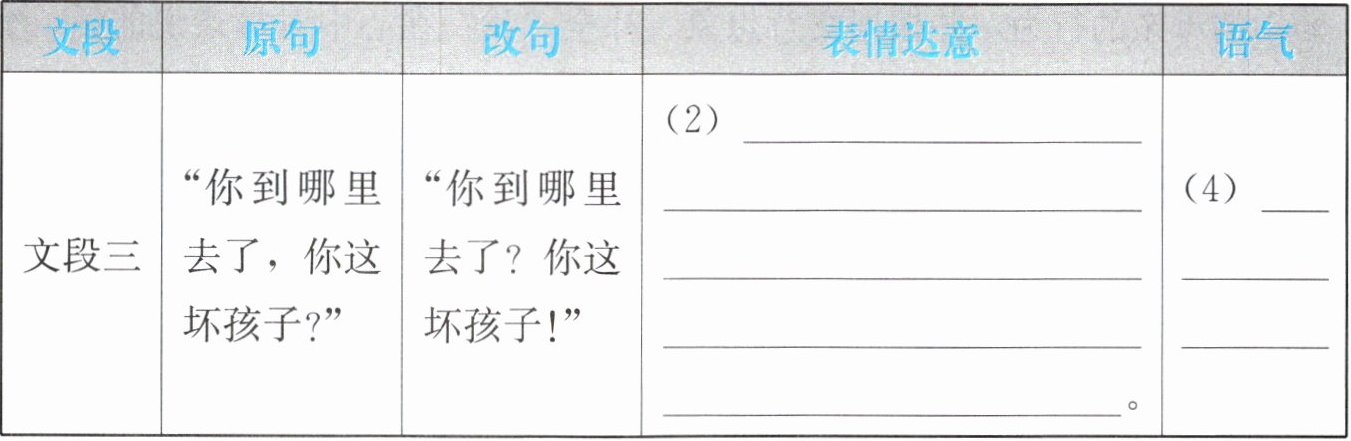 文段 原句 改句 表情达意 语气
文段三
“你到哪里
去了，你这
坏孩子?”
“你到哪里
去了? 你这
坏孩子!”
（2）
。
（4）